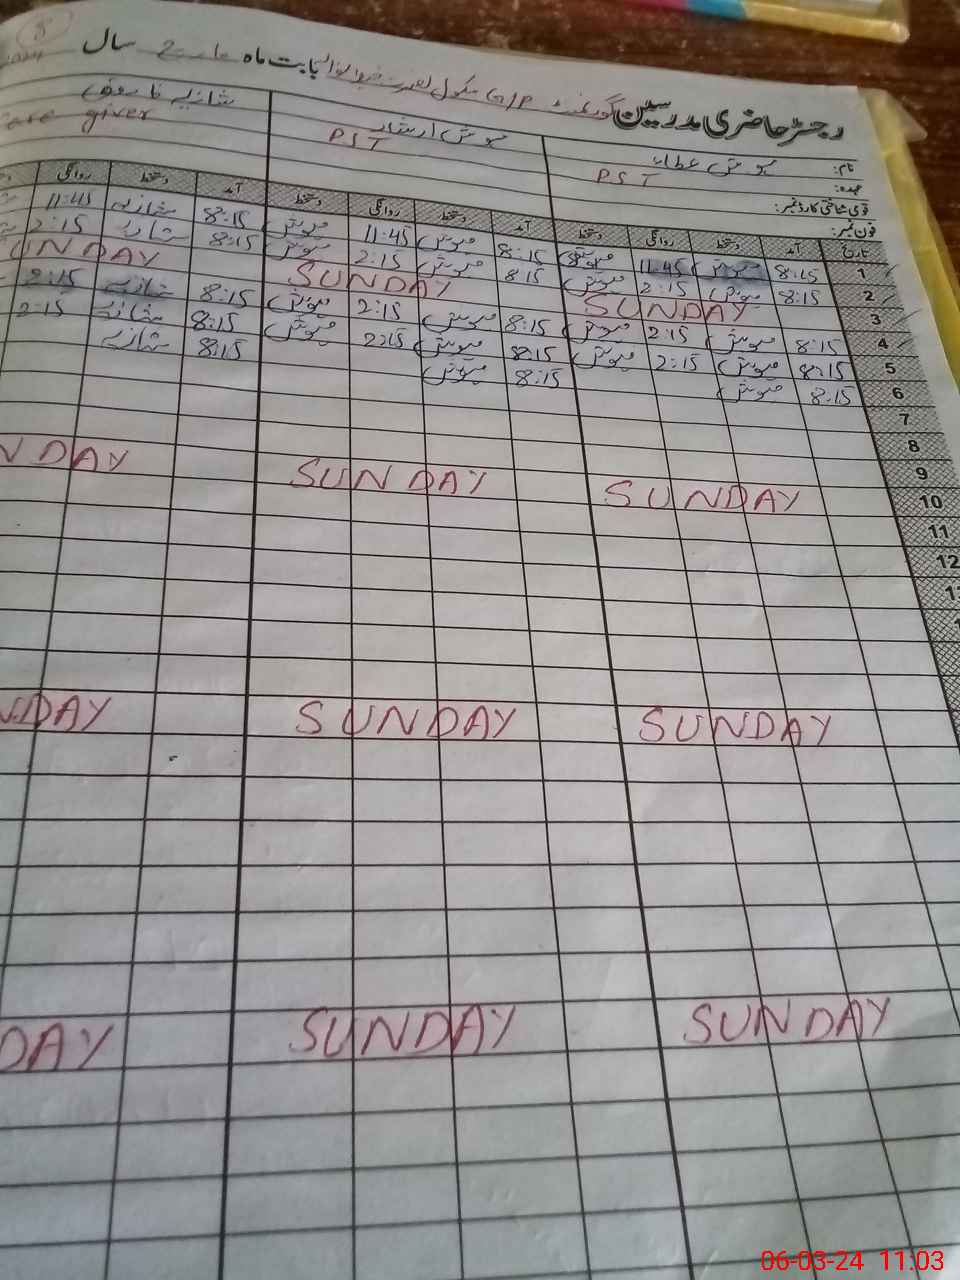 رجسٹر حاضری مدرسین گورنمنٹ G/P سکول بابت ماہ مارچ سال 2024
نام: مہوش عطاء مہوش ارشاد شازیہ
عہدہ: PST PST Care giver
قومی شناختی کارڈ نمبر:
فون نمبر:
تاریخ آمد دستخط روانگی دستخط آمد دستخط روانگی دستخط آمد دستخط روانگی
1 8:15 مہوش 11:45 مہوش 8:15 مہوش 11:45 مہوش 8:15 شازیہ 11:45
2 8:15 مہوش 2:15 مہوش 8:15 مہوش 2:15 مہوش 8:15 شازیہ 2:15
3 SUNDAY SUNDAY UNDAY
4 8:15 مہوش 2:15 مہوش 8:15 مہوش 2:15 مہوش 8:15 شازیہ 2:15
5 8:15 مہوش 2:15 مہوش 8:15 مہوش 2:15 مہوش 8:15 شازیہ 2:15
6 8:15 مہوش 8:15 مہوش 8:15 شازیہ
7
8
9
10 SUNDAY SUNDAY NDAY
11
12
SUNDAY SUNDAY NDAY
SUNDAY SUNDAY DAY
06-03-24 11:03